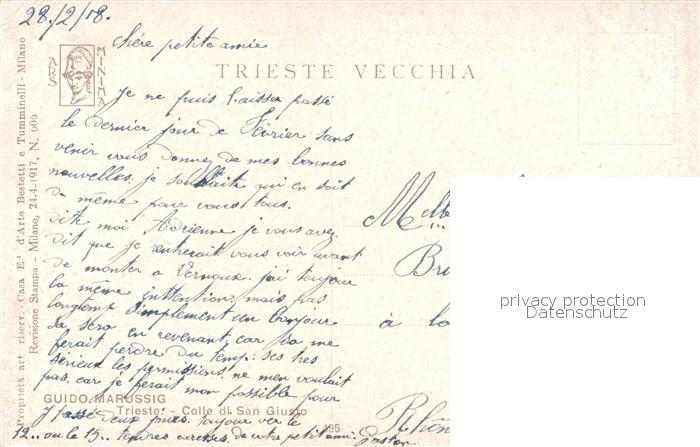 28/2/18.
chére petite amie
ARS MINIMA
TRIESTE VECCHIA
Je ne puis laisser passé
le dernier jour de Février sans
venir vous donnez de mes bonnes
nouvelles. je souhaite qui en soit
de même pour vous tous.
dite moi Adrienne je vous avez
dit que je rentrerait vous voir avant
de monter a Vernoux. j'ai toujour
la même inttention mais pas
longtemp simplement un bonjour
sa sera en revenant car sa me
ferait perdre du temp. ses tres
sérieux les permissions. ne men voulait
pas. car je ferait mon possible pour
y passé deux jours. toujour ver le
12.. ou le 15.. tendres caresses de votre petit ami. Gaston
Melle
Bru
à la
Rhôn
GUIDO MARUSSIG
Trieste - Colle di San Giusto
195
Proprietà art. riserv. Casa Ed. d'Arte Bestetti e Tumminelli - Milano
Revisione Stampa - Milano, 24-4-1917, N. 606
privacy protection
Datenschutz